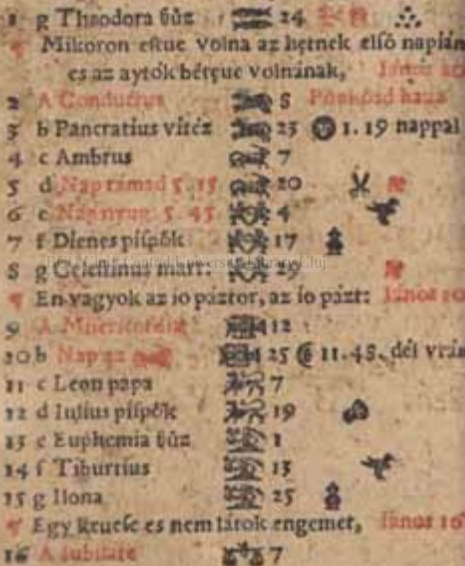 1 g Theodora ßűz 24
Mikoron estue Volna az hętnek elsö napián
es az aytók bétęue volnának, János 20
2 A Conductus 8 Púnkösd haua
3 b Pancratius vitéz 25 1. 19 nappal
4 c Ambrus 7
5 d Nap támad 5. 15 20
6 e Nap nyug. 5. 45 4
7 f Dienes píspők 17
8 g Celestinus mart: 29
En vagyok az io páztor, az io pázt: János 10
9 A Misericordia 12
10 b Nap az 25 11. 48. dél vrán
11 c Leon papa 7
12 d Iulius píspők 19
13 e Euphemia ßűz 1
14 f Tiburtius 13
15 g Ilona 25
Egy keuese es nem látok engemet, János 16
16 A Iubilate 7